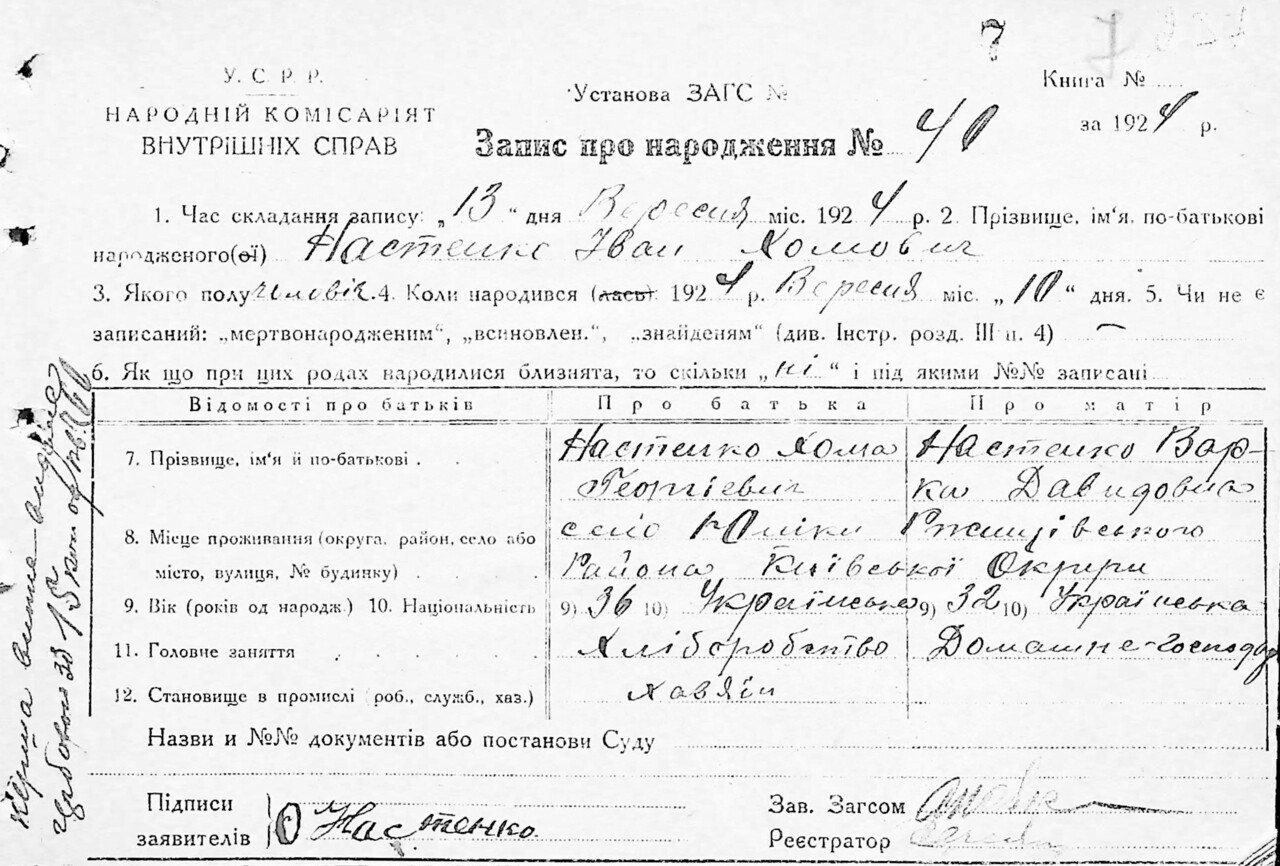 7
У. С. Р. Р.
НАРОДНІЙ КОМІСАРІЯТ
ВНУТРІШНІХ СПРАВ
Установа ЗАГС №
Книга №
за 1924 р.
Запис про народження № 40
1. Час складання запису: „13“ дня Вересня міс. 1924 р. 2. Прізвище, ім'я, по-батькові
народженого(ої) Настенко Іван Хомович
3. Якого полу чоловіч. 4. Коли народився (лась) 1924 р. Вересня міс. „10“ дня. 5. Чи не є
записаний: „мертвонародженим“, „всиновлен.“, „знайденям“ (див. Інстр. розд. III п. 4) —
6. Як що при цих родах народилися близнята, то скільки „ні“ і під якими №№ записані
Відомості про батьків Про батька Про матір
7. Прізвище, ім'я й по-батькові Настенко Хома Настенко Вар-
Георгієвич ка Давидовна
8. Місце проживання (округа, район, село або село Юшки Ржищівського
місто, вулиця, № будинку) Района Київської Округи
9. Вік (років од народж.) 10. Національність 9) 36 10) Українська 9) 32 10) Українська
11. Головне заняття Хліборобство Домашнє-господар
12. Становище в промислі (роб., служб., хаз.) Хазяїн
Назви и №№ документів або постанови Суду
Підписи
заявителів Настенко
Зав. Загсом
Реєстратор